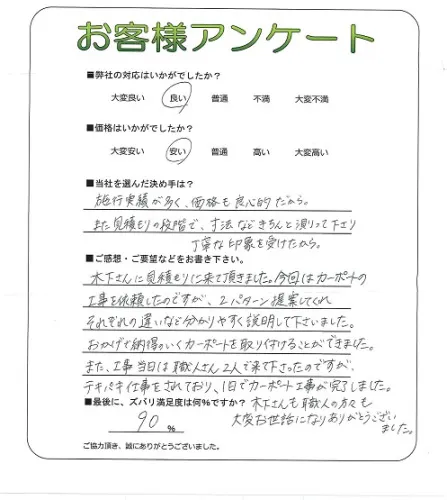 お客様アンケート
■弊社の対応はいかがでしたか？
大変良い 良い 普通 不満 大変不満
■価格はいかがでしたか？
大変安い 安い 普通 高い 大変高い
■当社を選んだ決め手は？
施行実績が多く、価格も良心的だから。
また見積もりの段階で、寸法などきちんと測って下さり
丁寧な印象を受けたから。
■ご感想・ご要望などをお書き下さい。
木下さんに見積もりに来て頂きました。今回はカーポートの
工事を依頼したのですが、2パターン提案してくれ
それぞれの違いなど分かりやすく説明して下さいました。
おかげで納得のいくカーポートを取り付けることができました。
また、工事当日は職人さん2人で来て下さったのですが、
テキパキ仕事をされており、1日でカーポート工事が完了しました。
■最後に、ズバリ満足度は何%ですか？
90 %
木下さんも職人の方々も
大変お世話になりありがとうござい
ました。
ご協力頂き、誠にありがとうございました。